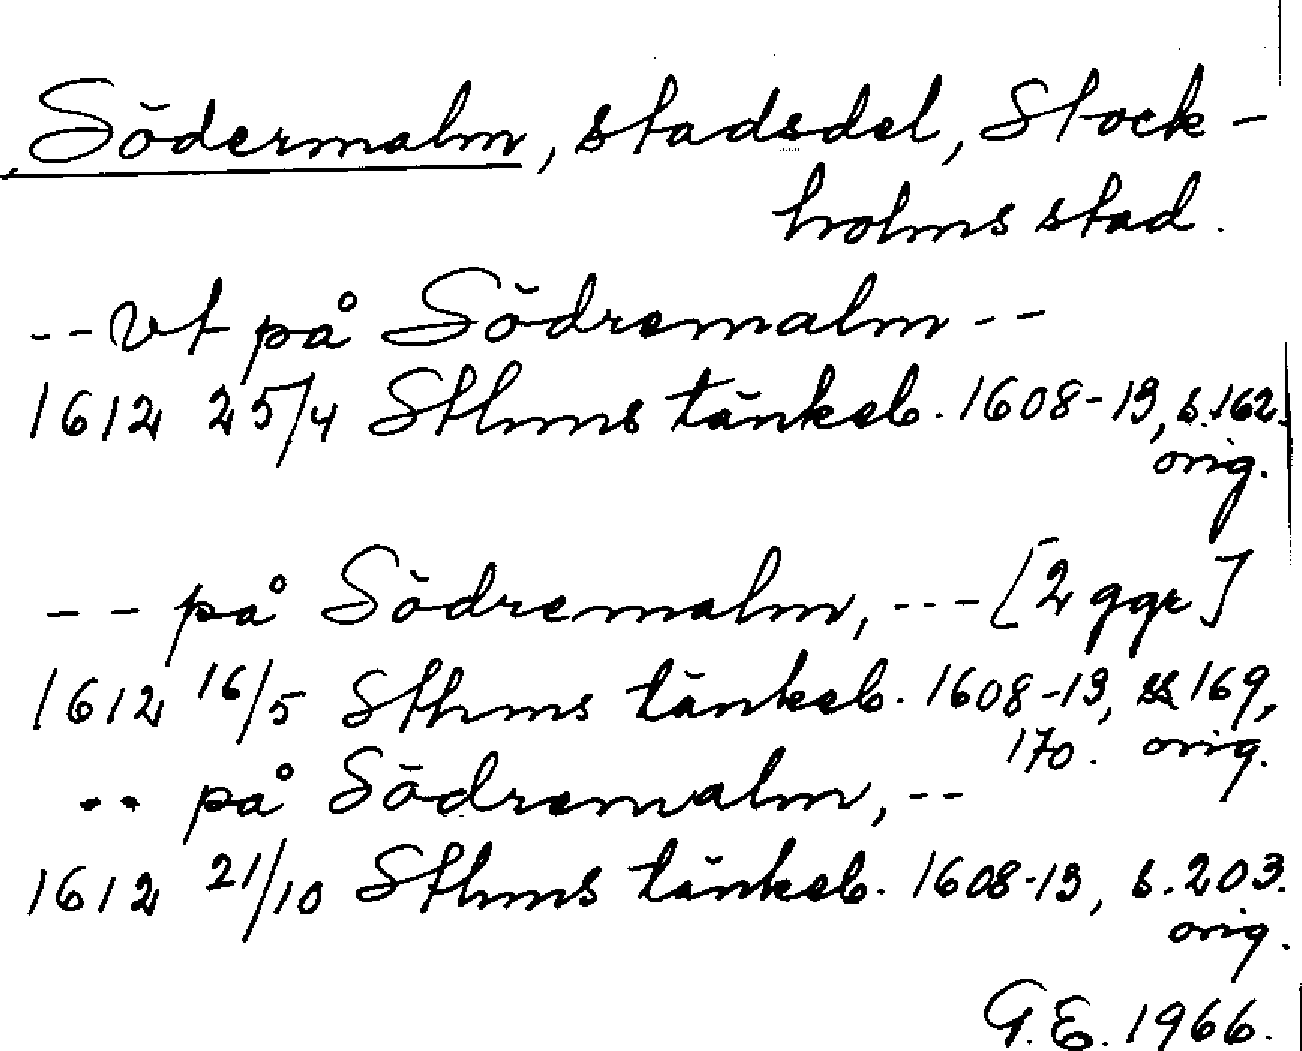 Södermalm, stadsdel, Stock-
holms stad.
-- Vt på Södremalm --
1612 25/4 Sthms tänkeb. 1608-13, s. 162.
orig.
-- på Södremalm, --- [2 ggr]
1612 16/5 Sthms tänkeb. 1608-13, ss 169,
170. orig.
-- på Södremalm, --
1612 21/10 Sthms tänkeb. 1608-13, s. 203.
orig.
G.E. 1966.